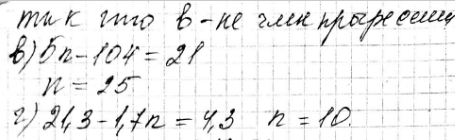 так что в - не член прогрессии
в) 5n - 104 = 21
n = 25
г) 21,3 - 1,7n = 4,3 n = 10